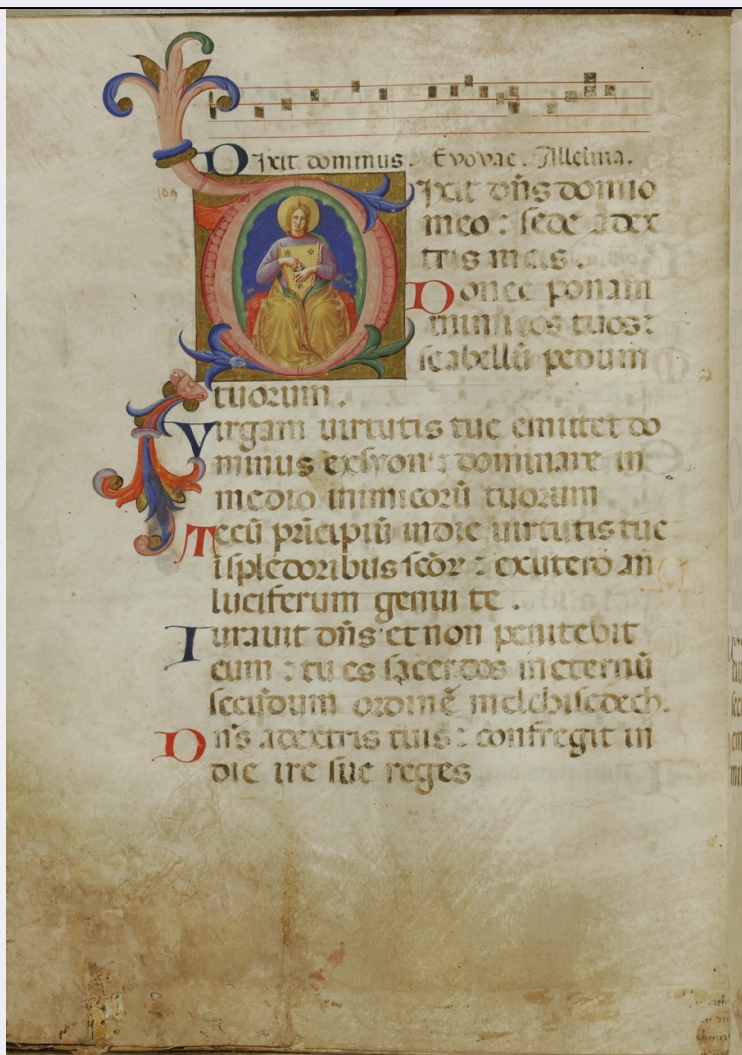 Dixit dominus. Evovae. Alleluia.
109
Dixit dn̄s domino
meo : sede adex
tris meis .
Donec ponam
inimicos tuos :
scabellū pedum
tuorum .
Virgam uirtutis tue emittet do
minus exsyon : dominare in
medio inimicorū tuorum
Tecū prīcipiū indie uirtutis tue
isplēdoribus scōꝝ : exutero an
luciferum genui te .
Iurauit dn̄s et non penitebit
eum : tu es sacerdos ineternū
secūdum ordinē melchisedech .
Dn̄s adextris tuis : confregit in
die ire sue reges